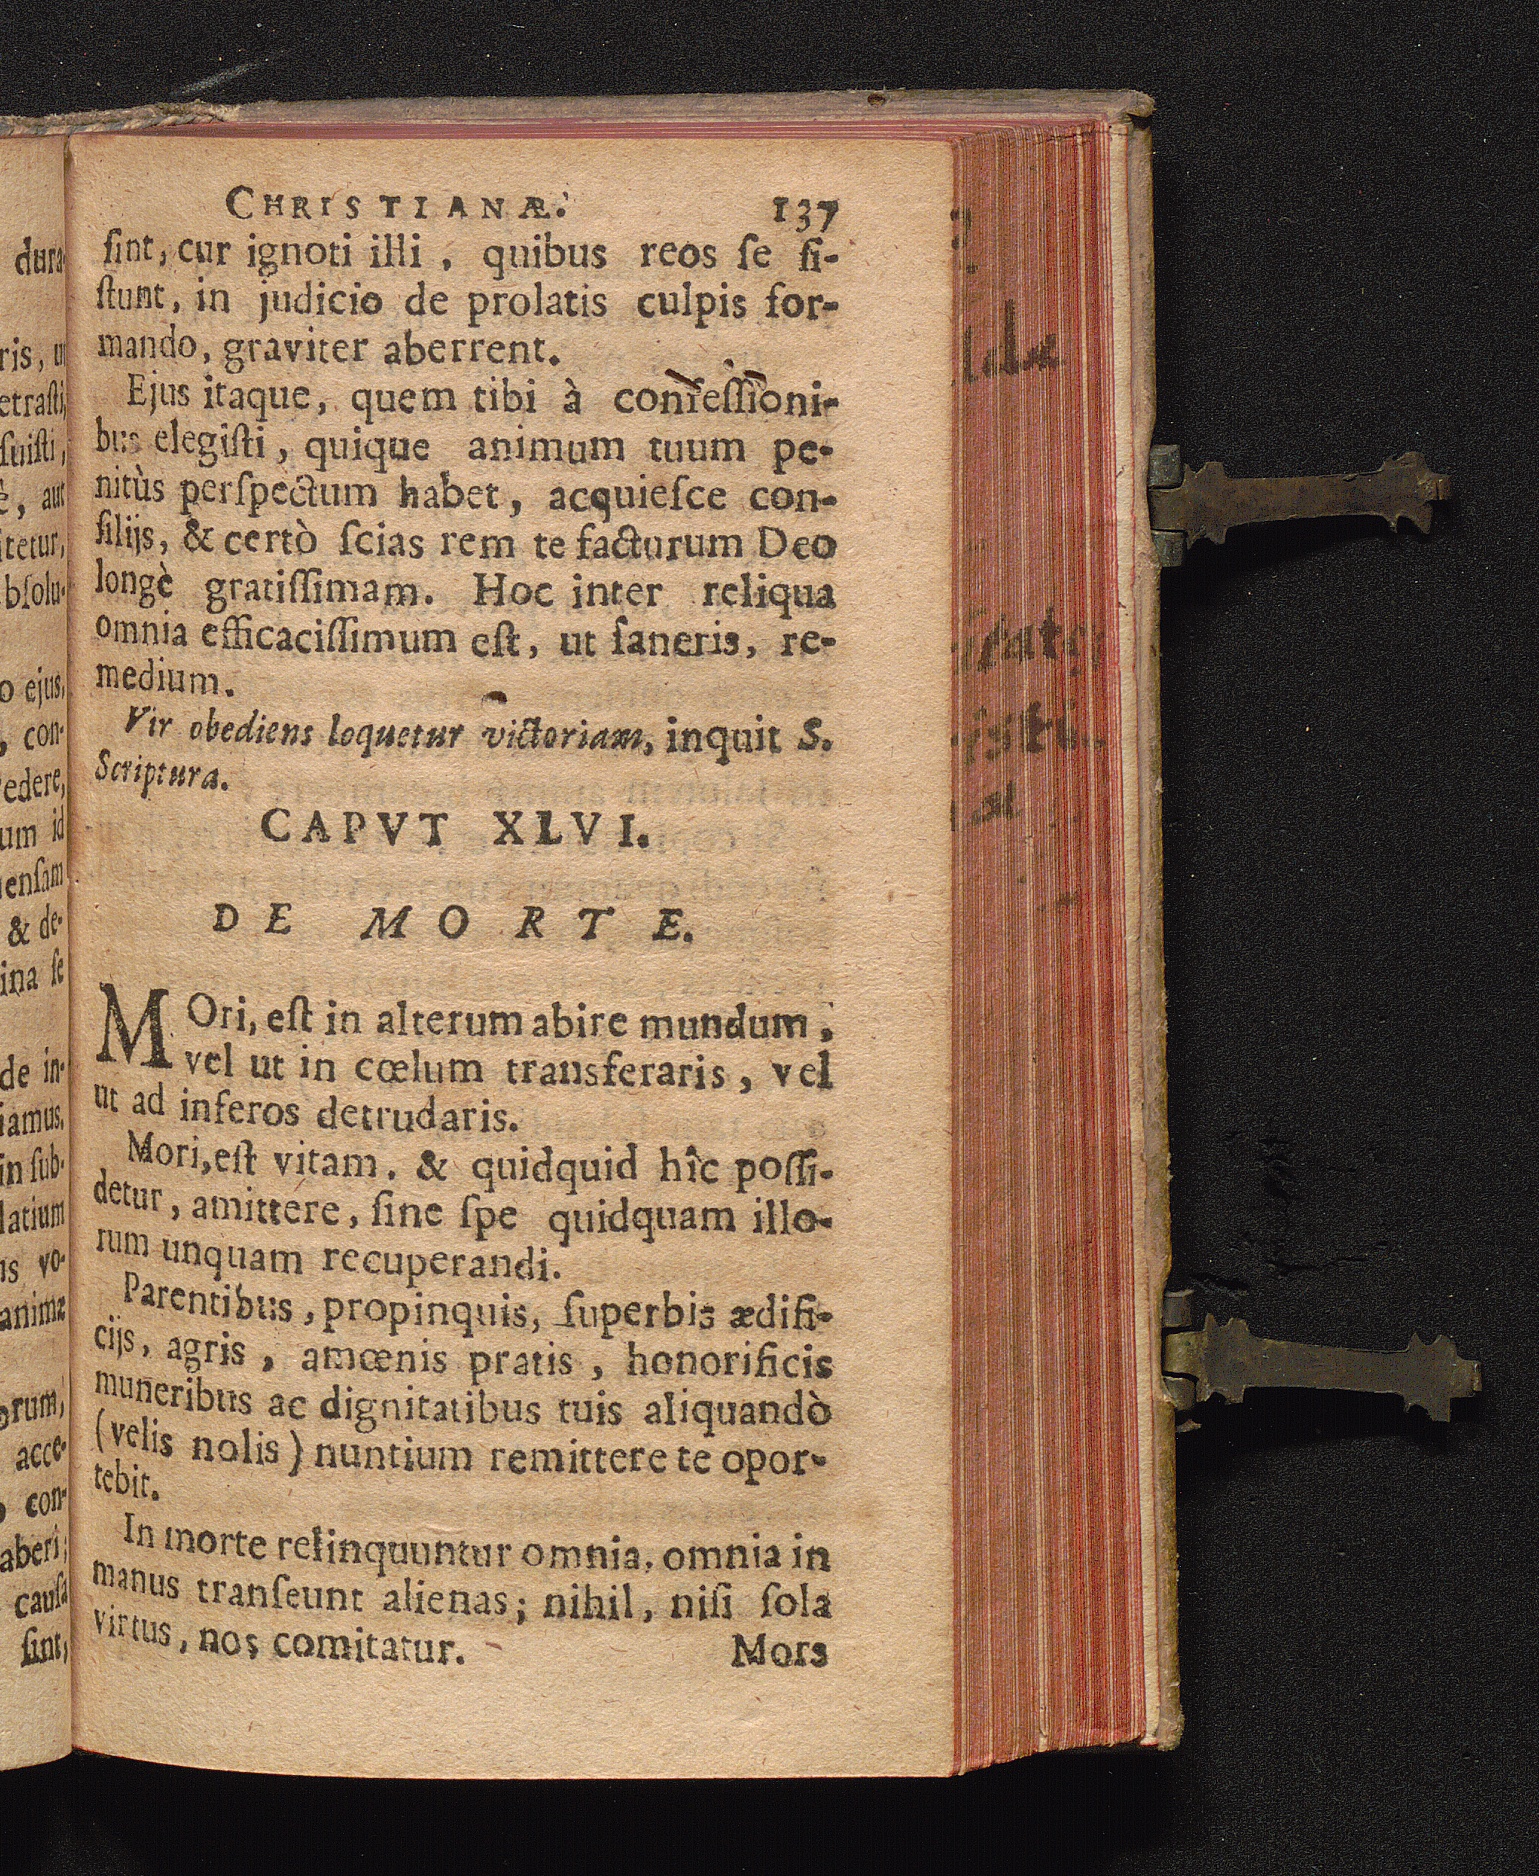 CHRISTIANÆ. 137
ſint, cur ignoti illi, quibus reos ſe ſi-
ſtunt, in judicio de prolatis culpis for-
mando, graviter aberrent.
Ejus itaque, quem tibi à confeſſioni-
bus elegiſti, quique animum tuum pe-
nitùs perſpectum habet, acquieſce con-
ſilijs, & certò ſcias rem te facturum Deo
longè gratiſſimam. Hoc inter reliqua
omnia efficaciſſimum eſt, ut ſaneris, re-
medium.
Vir obediens loquetur victoriam, inquit S.
Scriptura.
CAPVT XLVI.
DE MORTE.
MOri, eſt in alterum abire mundum,
vel ut in cœlum transferaris, vel
ut ad inferos detrudaris.
Mori, eſt vitam, & quidquid hîc poſſi-
detur, amittere, ſine ſpe quidquam illo-
rum unquam recuperandi.
Parentibus, propinquis, ſuperbis ædifi-
cijs, agris, amœnis pratis, honorificis
muneribus ac dignitatibus tuis aliquandò
(velis nolis) nuntium remittere te opor-
tebit.
In morte relinquuntur omnia, omnia in
manus tranſeunt alienas; nihil, niſi ſola
virtus, nos comitatur.
Mors
dura-
ris, ut
etraſti,
ſuiſti,
è, aut
itetur,
bſolu-
o ejus,
, con-
edere,
um id
enſam
& de-
ina ſe
de in-
iamus.
in ſub-
latium
us vo-
animæ
orum,
acce-
con-
aberi;
cauſa
ſint,